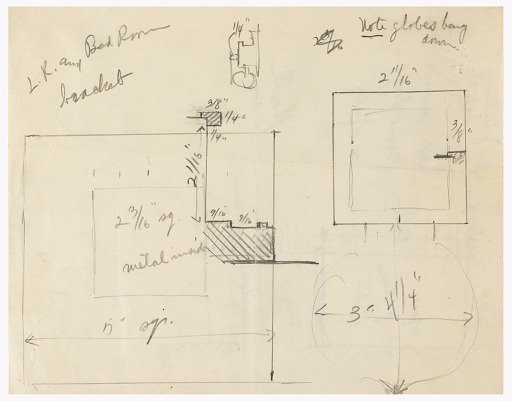 L.R. any Bed Room
bracket
1/4"
Note globes hang
down
2 11/16"
3/8"
1/4"
1/4"
2 1/16"
3/8"
9/16"
9/16"
2 3/16" sq.
metal inside
5" sq.
3" 4 1/4"